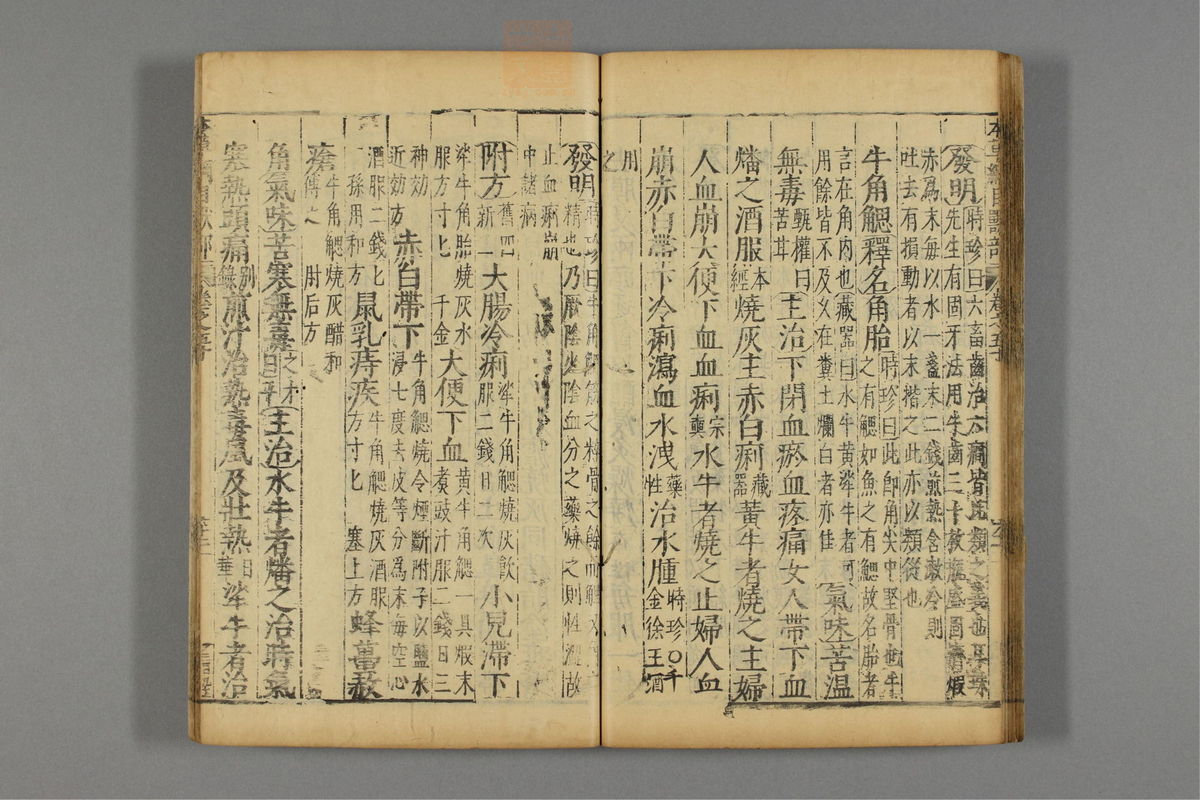 發明時珍曰六畜齒治六癇皆比類之義也耳珠
先生有固牙法用牛齒三十枚瓶盛固濟煅
赤為末每以水一盞末二錢煎熱含漱冷則
吐去有損動者以末揩之此亦以類從也
牛角䚡釋名角胎時珍曰此即角尖中堅骨也牛
之有䚡如魚之有鰓故名胎者
言在角內也藏器曰水牛黃𤚩牛者可
用餘皆不及久在糞土爛白者亦佳氣味苦温
無毒甄權曰苦甘主治下閉血瘀血疼痛女人帶下血
燔之酒服本經燒灰主赤白痢藏器黃牛者燒之主婦
人血崩大便下血血痢宗奭水牛者燒之止婦人血
崩赤白帶下冷痢瀉血水洩藥性治水腫時珍〇千
金徐王酒
用之
發明時珍曰牛角䚡筋之粹骨之餘而䚡
精也乃厥陰少陰血分之藥燒之則性澀故
止血痢崩
中諸病
附方舊四新一大腸冷痢𤚩牛角䚡燒灰飲
服二錢日二次小兒滯下
𤚩牛角胎燒灰水
服方寸匕千金大便下血黃牛角䚡一具煅末
煮豉汁服二錢日三
神効
近効方赤白帶下牛角䚡燒令煙斷附子以鹽水
浸七度去皮等分為末每空心
酒服二錢匕
孫用和方鼠乳痔疾牛角䚡燒灰酒服
方寸匕塞上方蜂蠆螫
瘡牛角䚡燒灰醋和
傅之肘后方
角氣味苦寒無毒之才曰平主治水牛者燔之治時氣
寒熱頭痛別錄煎汁治熱毒風及壯熱日華𤚩牛者治